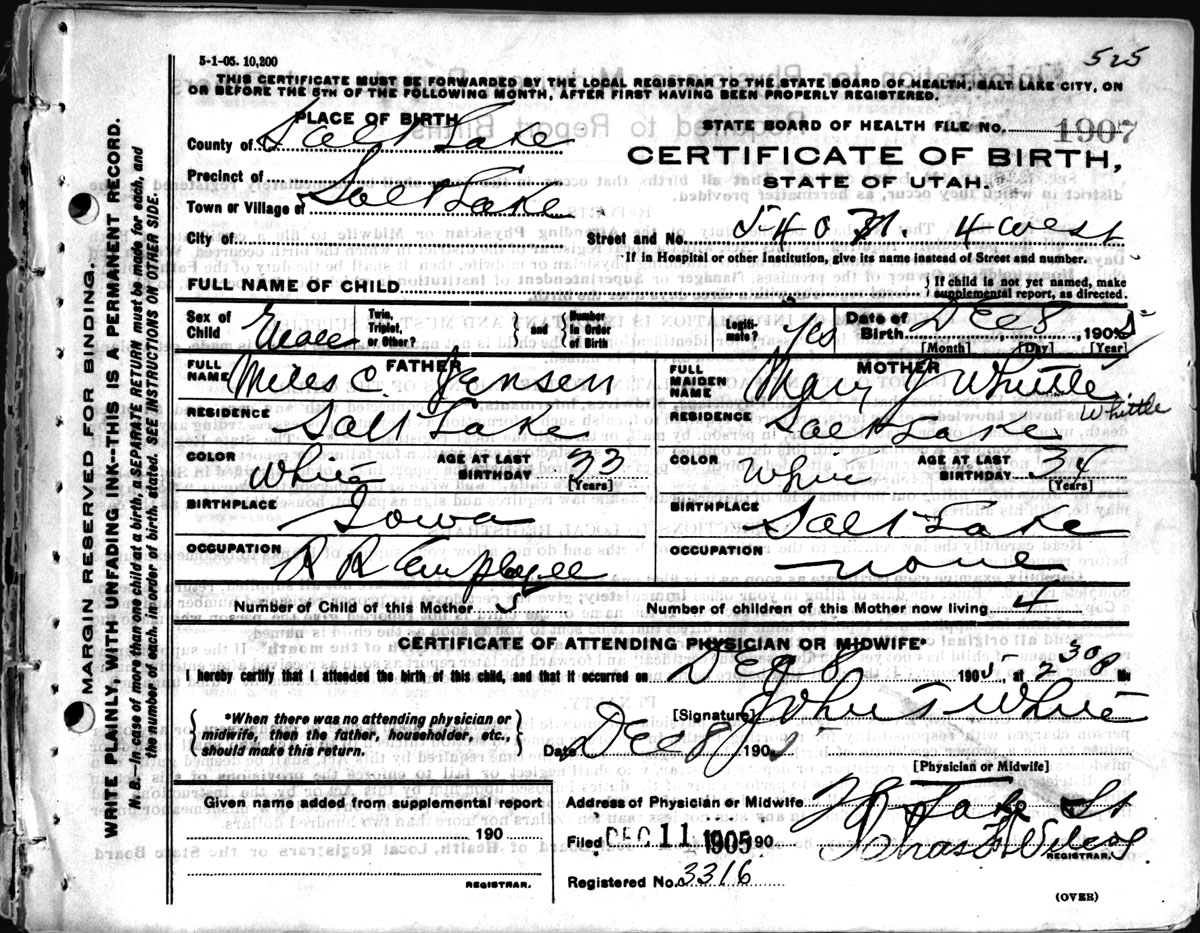 5-1-05. 10,200
525
THIS CERTIFICATE MUST BE FORWARDED BY THE LOCAL REGISTRAR TO THE STATE BOARD OF HEALTH, SALT LAKE CITY, ON
OR BEFORE THE 5TH OF THE FOLLOWING MONTH, AFTER FIRST HAVING BEEN PROPERLY REGISTERED.
PLACE OF BIRTH
County of Salt Lake
Precinct of
Town or Village of Salt Lake
City of
STATE BOARD OF HEALTH FILE NO. 1907
CERTIFICATE OF BIRTH,
STATE OF UTAH.
Street and No. 540 N. 4 West
*If in Hospital or other Institution, give its name instead of Street and number.
FULL NAME OF CHILD
If child is not yet named, make
supplemental report, as directed.
Sex of Child Male
Twin, Triplet, or Other?
and
Number in Order of Birth
Legiti-mate? Yes
Date of Birth Dec 8, 1905
[Month] [Day] [Year]
FATHER
FULL NAME Miles C. Jensen
RESIDENCE Salt Lake
COLOR White
AGE AT LAST BIRTHDAY 33
[Years]
BIRTHPLACE Iowa
OCCUPATION R R Employee
MOTHER
FULL MAIDEN NAME Mary J Whittle
Whittle
RESIDENCE Salt Lake
COLOR White
AGE AT LAST BIRTHDAY 34
[Years]
BIRTHPLACE Salt Lake
OCCUPATION none
Number of Child of this Mother 5
Number of children of this Mother now living 4
CERTIFICATE OF ATTENDING PHYSICIAN OR MIDWIFE*
I hereby certify that I attended the birth of this child, and that it occurred on Dec 8 1905, at 2 30 P M
*When there was no attending physician or
midwife, then the father, householder, etc.,
should make this return.
[Signature] John T White
Date Dec 8, 1905
[Physician or Midwife]
Given name added from supplemental report
190
REGISTRAR.
Address of Physician or Midwife
Filed DEC 11 1905 190
REGISTRAR.
Registered No. 3316
(OVER)
MARGIN RESERVED FOR BINDING.
WRITE PLAINLY, WITH UNFADING INK--THIS IS A PERMANENT RECORD.
N. B.--In case of more than one child at a birth, a SEPARATE RETURN must be made for each, and
the number of each, in order of birth, stated. SEE INSTRUCTIONS ON OTHER SIDE.